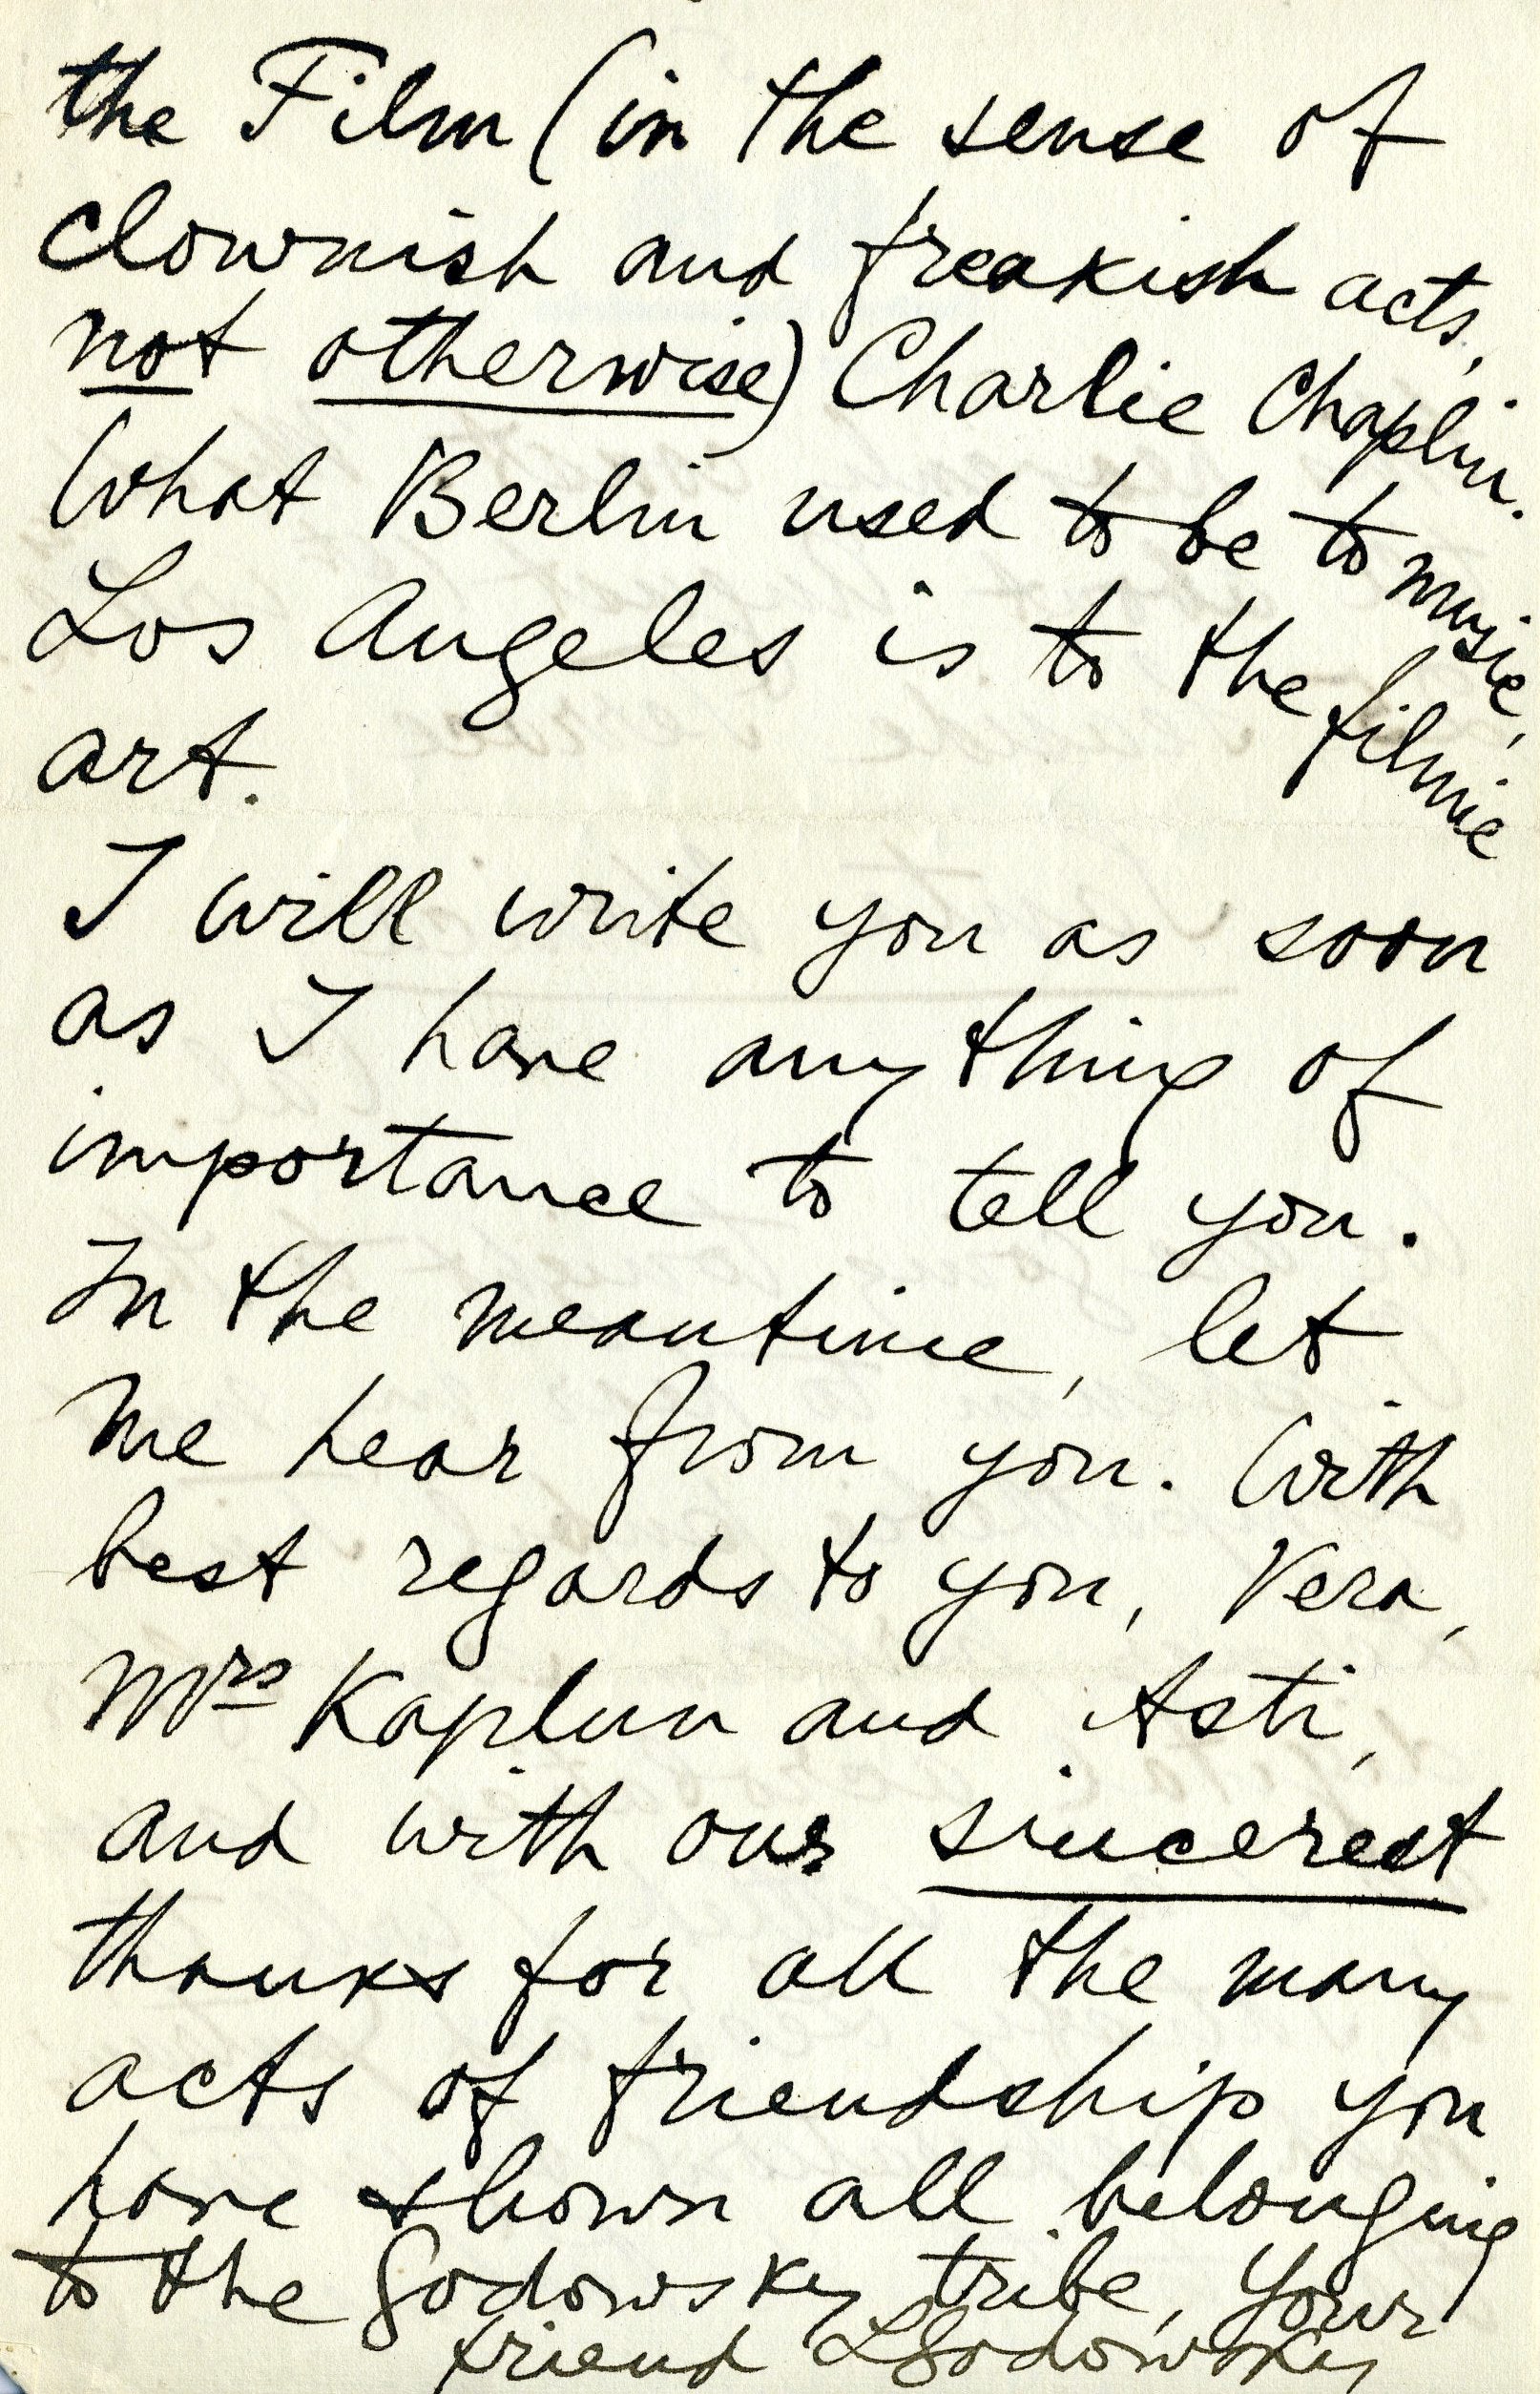 the Film (in the sense of
clownish and freakish acts,
not otherwise) Charlie Chaplin.
What Berlin used to be to music,
Los Angeles is to the filmic
art.
I will write you as soon
as I have anything of
importance to tell you.
In the meantime, let
me hear from you. With
best regards to you, Vera,
Mrs Kaplun and Asti,
and with our sincerest
thanks for all the many
acts of friendship you
have shown all belonging
to the Godowsky tribe, your
friend LGodowsky